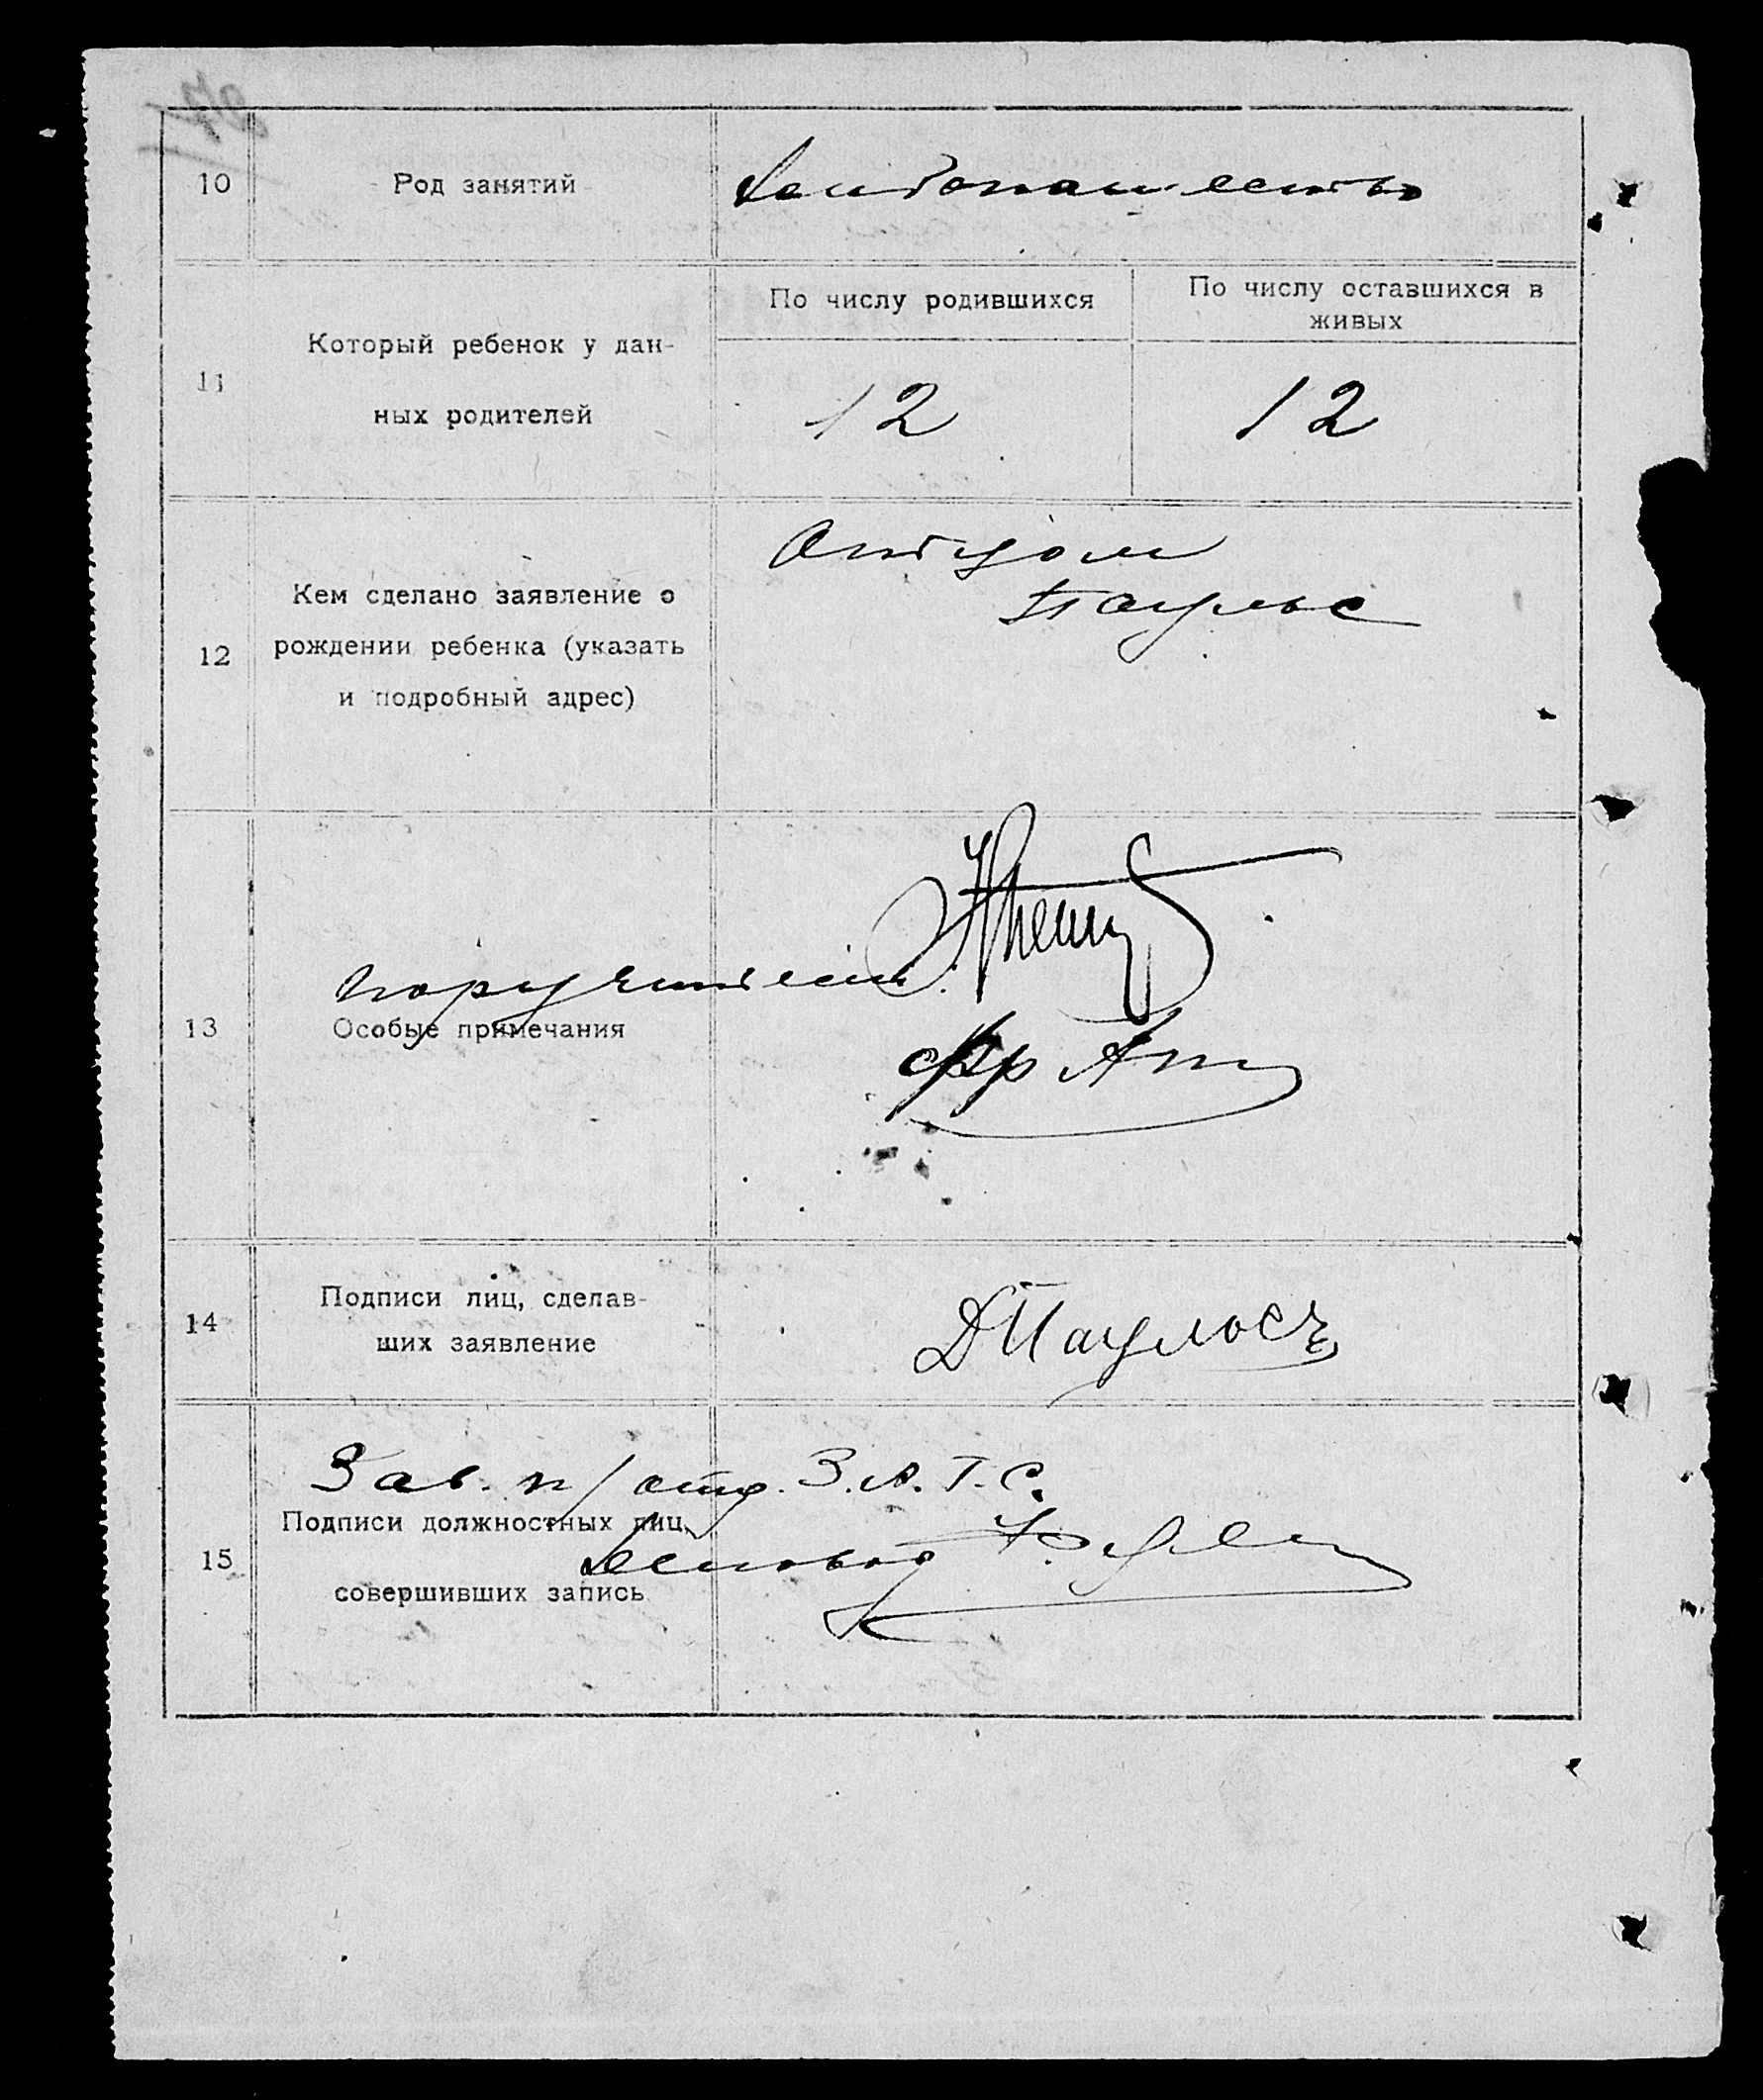 10 Род занятий хлебопашество
11 Который ребенок у дан-
ных родителей
По числу родившихся
По числу оставшихся в
живых
12
12
12 Кем сделано заявление о
рождении ребенка (указать
и подробный адрес)
Отцом
Паульс
13 Особые примечания
поручители
14 Подписи лиц, сделав-
ших заявление
ДПаулосъ
15 Подписи должностных лиц,
совершивших запись
Зав. п/отд. З.А.Г.С.